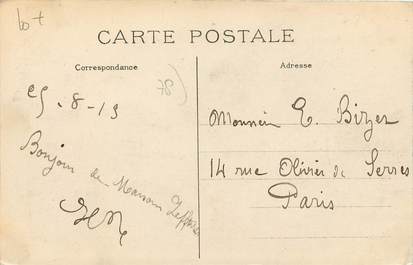 lot
CARTE POSTALE
Correspondance
Adresse
25-8-13
Bonjour de Maisons
Monsieur E.
14 rue Olivier de Serres
Paris